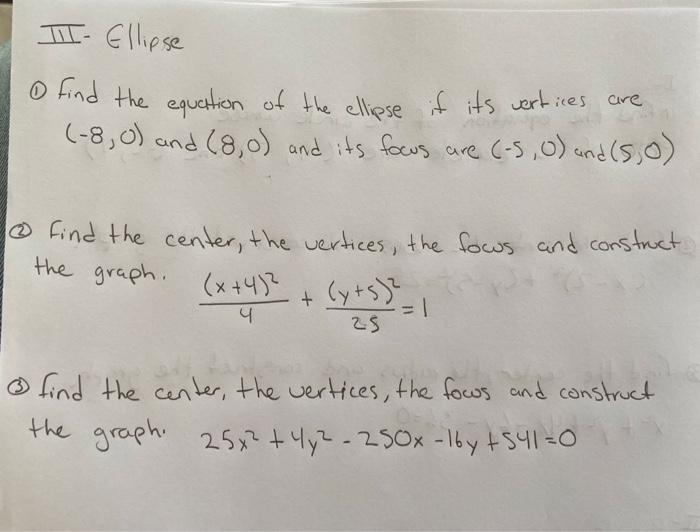 III- Ellipse
① Find the equation of the ellipse if its vertices are
(-8,0) and (8,0) and its focus are (-5,0) and (5,0)
② Find the center, the vertices, the focus and construct
the graph. (x+4)²/4 + (y+5)²/25 = 1
③ find the center, the vertices, the focus and construct
the graph. 25x² + 4y² - 250x - 16y + 541 = 0